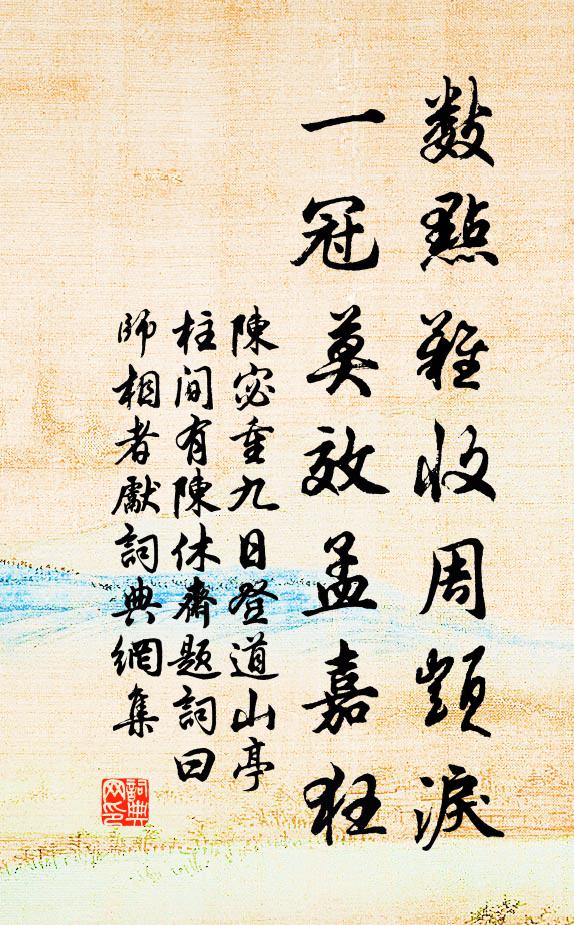 數點難收周顗淚
一冠莫效孟嘉狂
陳宓重九日登道山亭
柱間有陳休齋題詞曰
師相者獻詞典網集
詞典
网印